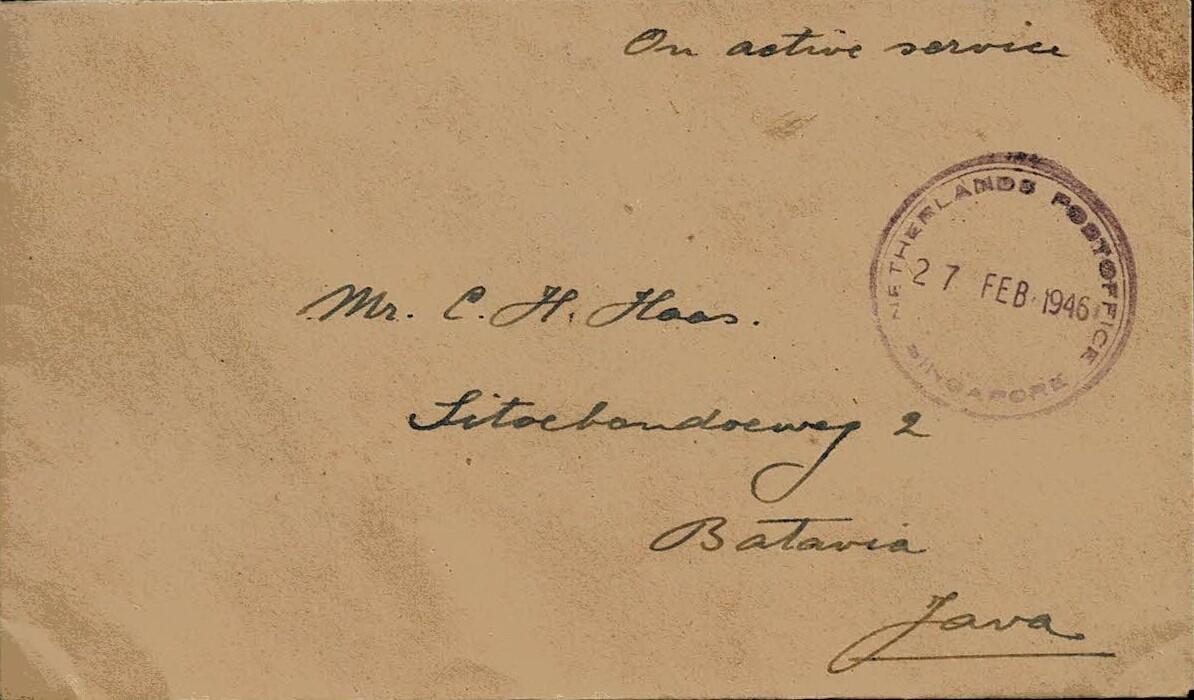 On active service
NETHERLANDS POSTOFFICE
27 FEB. 1946
SINGAPORE
Mr. C. H. Haas.
Sitoebondoeweg 2
Batavia
Java